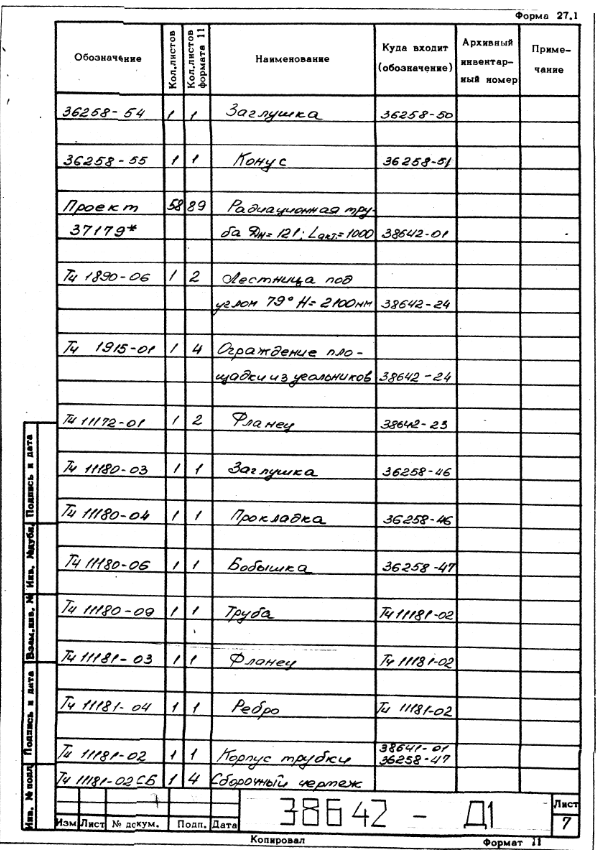 Форма 27.1
Обозначение Кол.листов Кол.листов формата 11 Наименование Куда входит (обозначение) Архивный инвентарный номер Примечание
36258-54 1 1 Заглушка 36258-50
36258-55 1 1 Конус 36258-51
Проект 58 89 Радиационная тру-
37179* ба Дн=121; Lакт.=1000 38642-01
Тч 1890-06 1 2 Лестница под
углом 79° H=2100мм 38642-24
Тч 1915-01 1 4 Ограждение пло-
щадки из угольников 38642-24
Тч 11172-01 1 2 Фланец 38642-23
Тч 11180-03 1 1 Заглушка 36258-46
Тч 11180-04 1 1 Прокладка 36258-46
Тч 11180-06 1 1 Бобышка 36258-47
Тч 11180-09 1 1 Труба Тч 11181-02
Тч 11181-03 1 1 Фланец Тч 11181-02
Тч 11181-04 1 1 Ребро Тч 11181-02
38641-01
Тч 11181-02 1 1 Корпус трубки 36258-47
Тч 11181-02 СБ 1 4 Сборочный чертеж
Инв. № подл. Подпись и дата Взам.инв. № Инв. №дубл. Подпись и дата
38642 - Д1
Лист
7
Изм Лист № докум. Подп. Дата
Копировал Формат 11